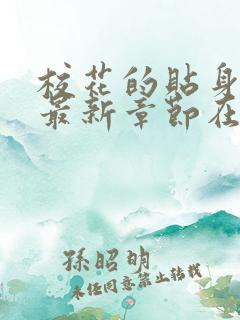 校花的贴身
最新章节在
孫昭明
未经同意禁止转载